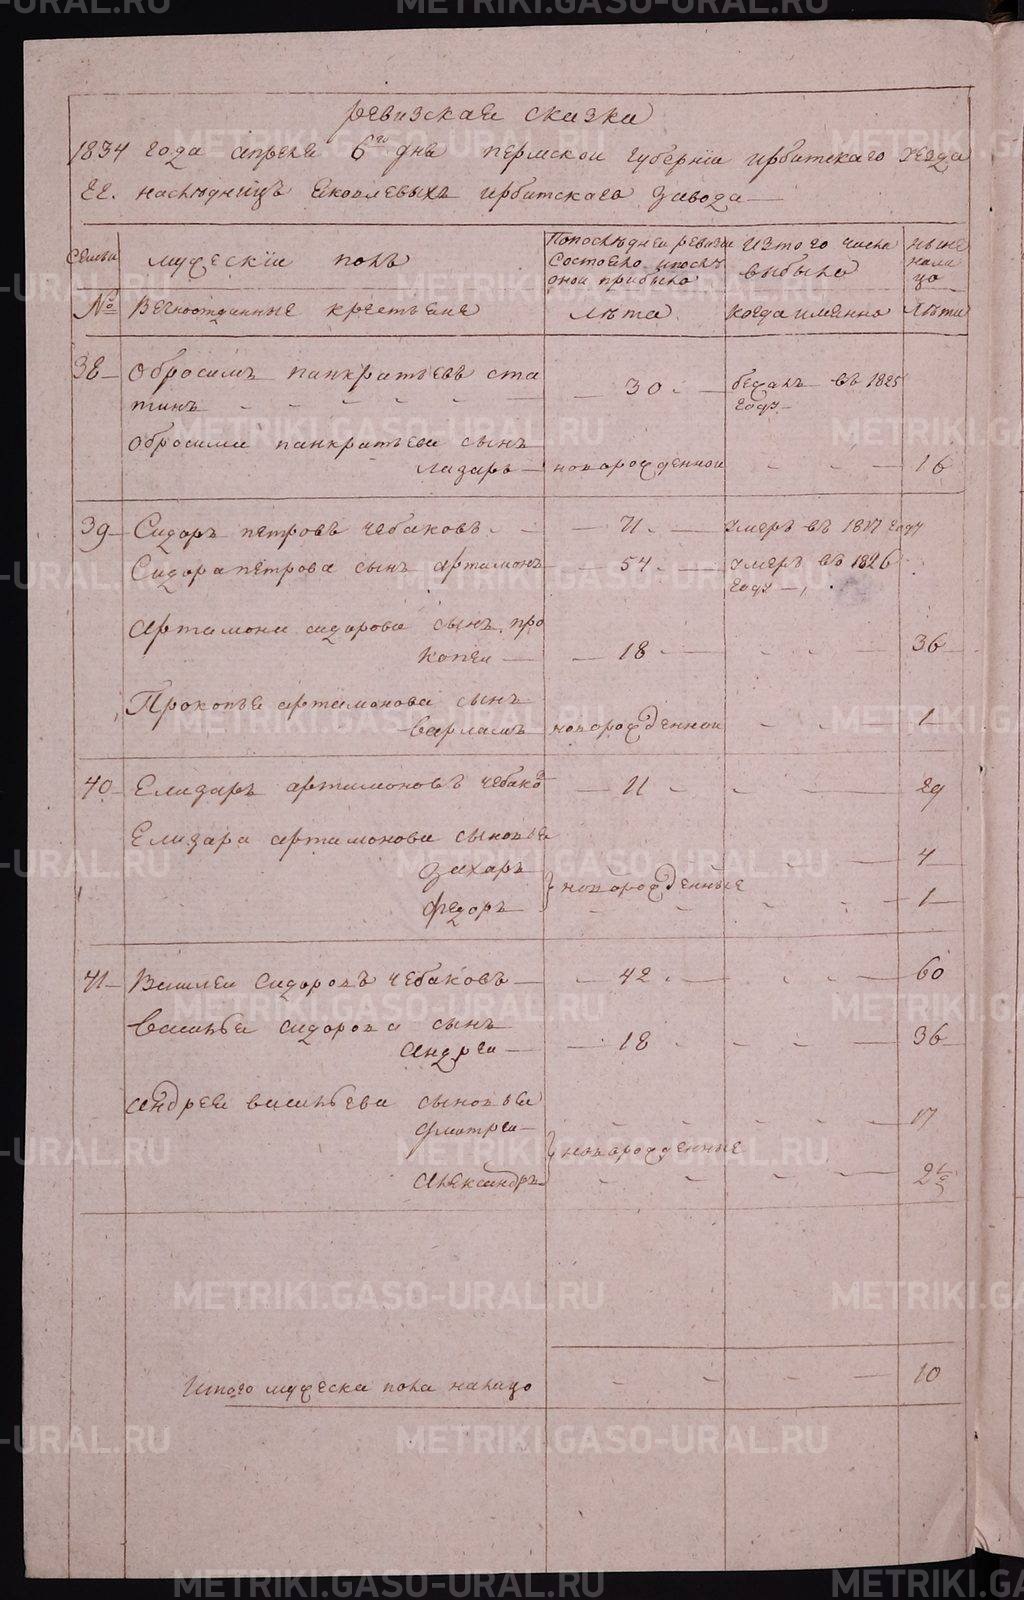 ревизская сказка
1834 года апреля 6го дня пермской губернiи ирбитскаго уезда
гг. наслѣдницъ Яковлевыхъ ирбитскаго завода
семьи
мужескiи полъ
По послѣдней ревизи
Состояло и послѣ
оной прибыло
Изтого числа
выбыло
ныне
нали
цо
№
Вечноотданные крестьяне
лѣта
когда имянно
Лѣты
38 Обросимъ панкратьевъ ста 30 бежалъ въ 1825
тинъ году
Обросима панкратьева сынъ
лазарь новорожденной 16
39 Сидоръ петровъ чебаковъ 71 умеръ въ 1817 году
Сидора петрова сынъ артамонъ 54 умеръ въ 1826
году
Артамона сидорова сынъ про
копеи 18 36
Прокопья артамонова сынъ
варламъ новорожденной 1
40 Елизаръ артамоновъ чебаковъ 11 29
Елизара артамонова сыновья
захаръ 4
новорожденные
федоръ 1
41 Василеи Сидоровъ чебаковъ 42 60
Василья сидорова сынъ
Андреи 18 36
Андрея васильева сыновья
дмитреи 17
новорожденные
Александръ 2
Итого мужеска пола налицо 10
METRIKI.GASO-URAL.RU